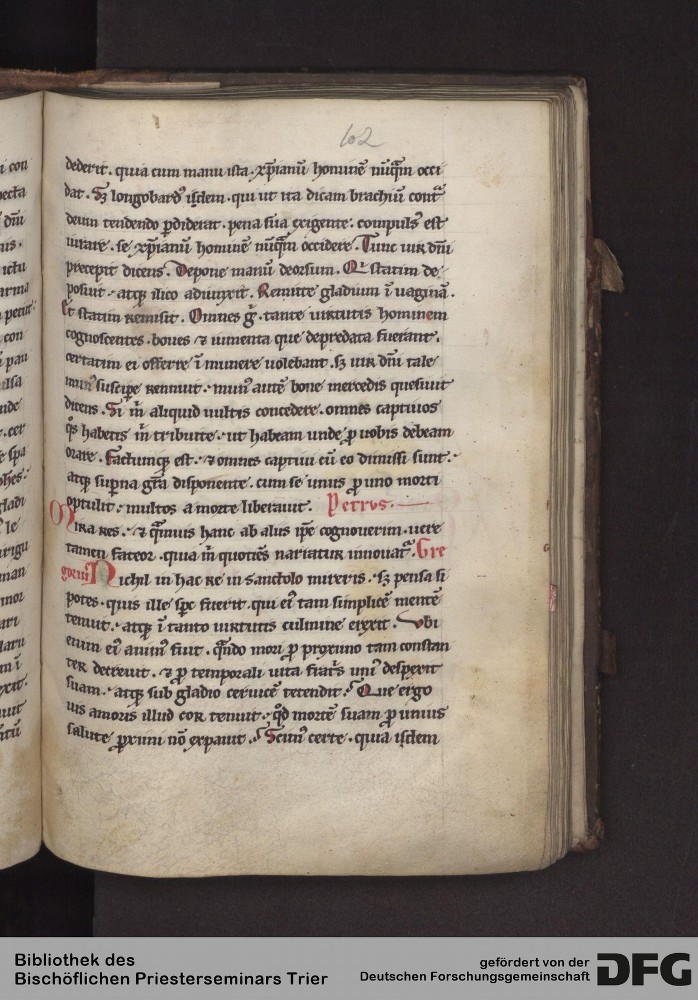 102
dederit. quia cum manu ista. xp̄ianū hominē nūq̄m occi
dat. Sꝫ longobardꝰ isdem. qui ut ita dicam brachiū contᷓ
deum tendendo ꝑdiderat. pena sua exigente. compulsꝰ est
iurare. se xp̄ianū hominē nūq̄m occidere. Tunc uir dn̄i
precepit dicens. Depone manū deorsum. Qi statim de
posuit. atqꝫ ilico adiunxit. Remitte gladium ī uaginā.
Et statim remisit. Omnes gͦ. tante uirtutis hominem
cognoscentes. boues ⁊ iumenta que depredata fuerant.
certatim ei offerre ī munere uolebant. sꝫ uir dn̄i tale
munꝰ suscipe rennuit. munꝰ autē bone mercedis quesiuit
dicens. Si m̄ aliquid uultis concedere. omnes captiuos
q̊s habetis m̄ tribuite. ut habeam unde ꝓ uobis debeam
orare. Factumqꝫ est. ⁊ omnes captiui cū eo dimissi sunt.
atqꝫ suꝑna gr̄a disponente. cum se unus ꝓ uno morti
optulit. multos a morte liberauit. Petrus.
Mira res. ⁊ q̄muis hanc ab aliis ip̄e cognouerim. uere
tamen fateor. quia m̄ quotiēs narratur innouatᷓ. Gre
goriusNichil in hac re in Sanctolo mireris. sꝫ pensa si
potes. quis ille spc fuerit. qui eiꝰ tam simplicē mentē
tenuit. atqꝫ ī tanto uirtutis culmine erexit. Vbi
enim eiꝰ animꝰ fuit. q̄ndo mori ꝓ proximo tam constan
ter decreuit. ⁊ ꝓ temporali uita fratᷓs uniꝰ despexit
suam. atqꝫ sub gladio ceruicē tetendit. Que ergo
uis amoris illud cor tenuit. q̊d mortē suam ꝓ unius
salute ꝓximi nō expauit. Scimꝰ certe. quia isdem
Bibliothek des
Bischöflichen Priesterseminars Trier
gefördert von der
Deutschen Forschungsgemeinschaft
DFG